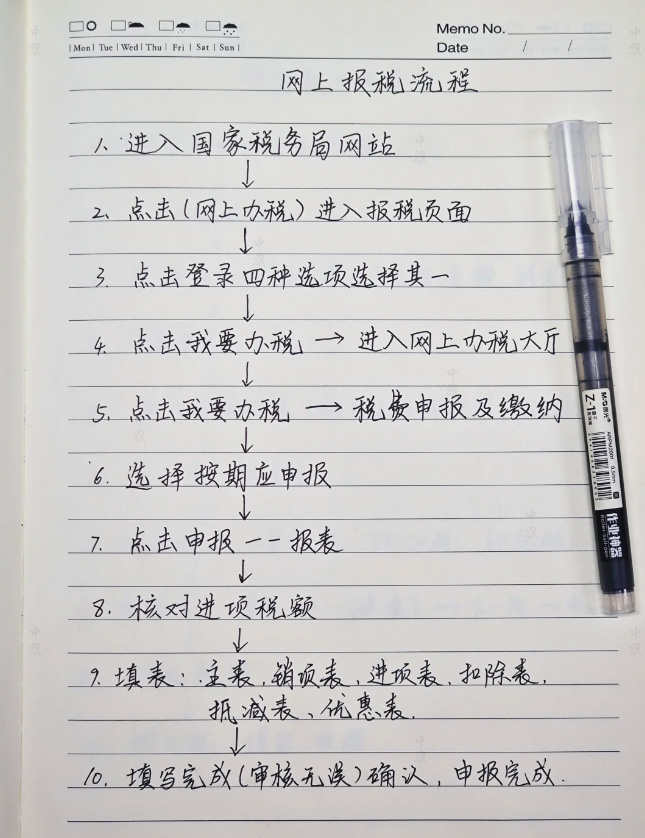 Memo No.
Mon Tue Wed Thu Fri Sat Sun
Date / /
网上报税流程
1. 进入国家税务局网站
↓
2. 点击(网上办税)进入报税页面
↓
3. 点击登录四种选项选择其一
↓
4. 点击我要办税 → 进入网上办税大厅
↓
5. 点击我要办税 → 税费申报及缴纳
↓
6. 选择按期应申报
↓
7. 点击申报一一报表
↓
8. 核对进项税额
↓
9. 填表: 主表、销项表、进项表、扣除表、
抵减表、优惠表.
↓
10. 填写完成(审核无误)确认, 申报完成.
M&G晨光
Z-1
0.5mm
作业神器